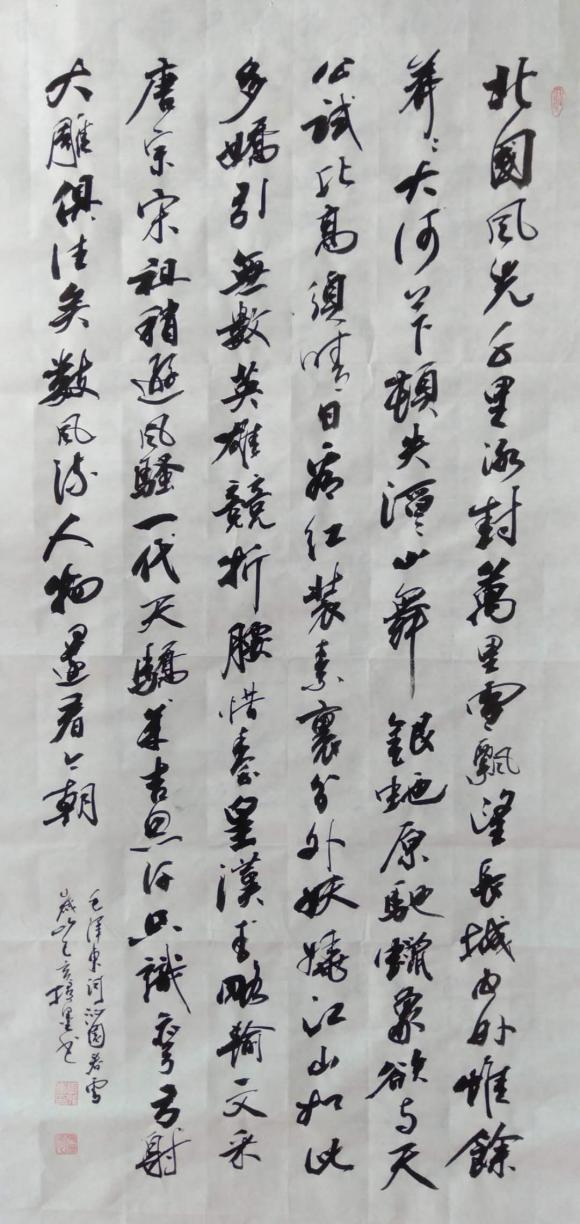 北國風光千里冰封萬里雪飄望長城内外惟餘
莽〻大河上下頓失滔〻山舞銀蛇原馳蠟象欲与天
公試比高須晴日看红装素裹分外妖嬈江山如此
多嬌引無數英雄競折腰惜秦皇漢武略輸文采
唐宗宋祖稍遜風騷一代天驕成吉思汗只識彎弓射
大雕俱往矣數風流人物還看今朝
毛澤東詞沁園春雪
歲次己亥墨书